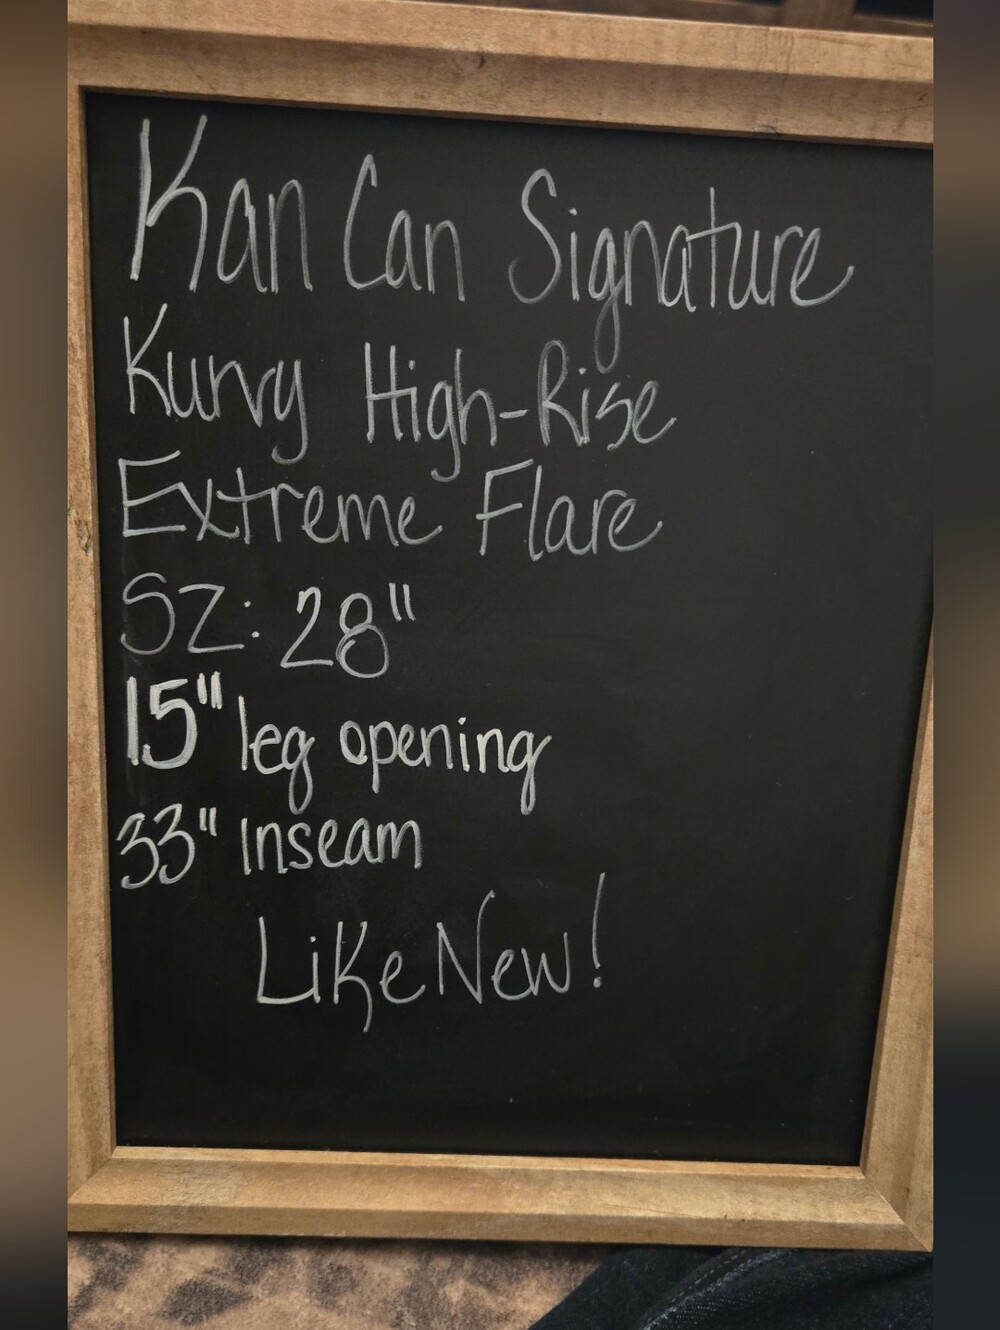 Kan Can Signature
Kurvy High-Rise
Extreme Flare
SZ: 28"
15" leg opening
33" Inseam
Like New!